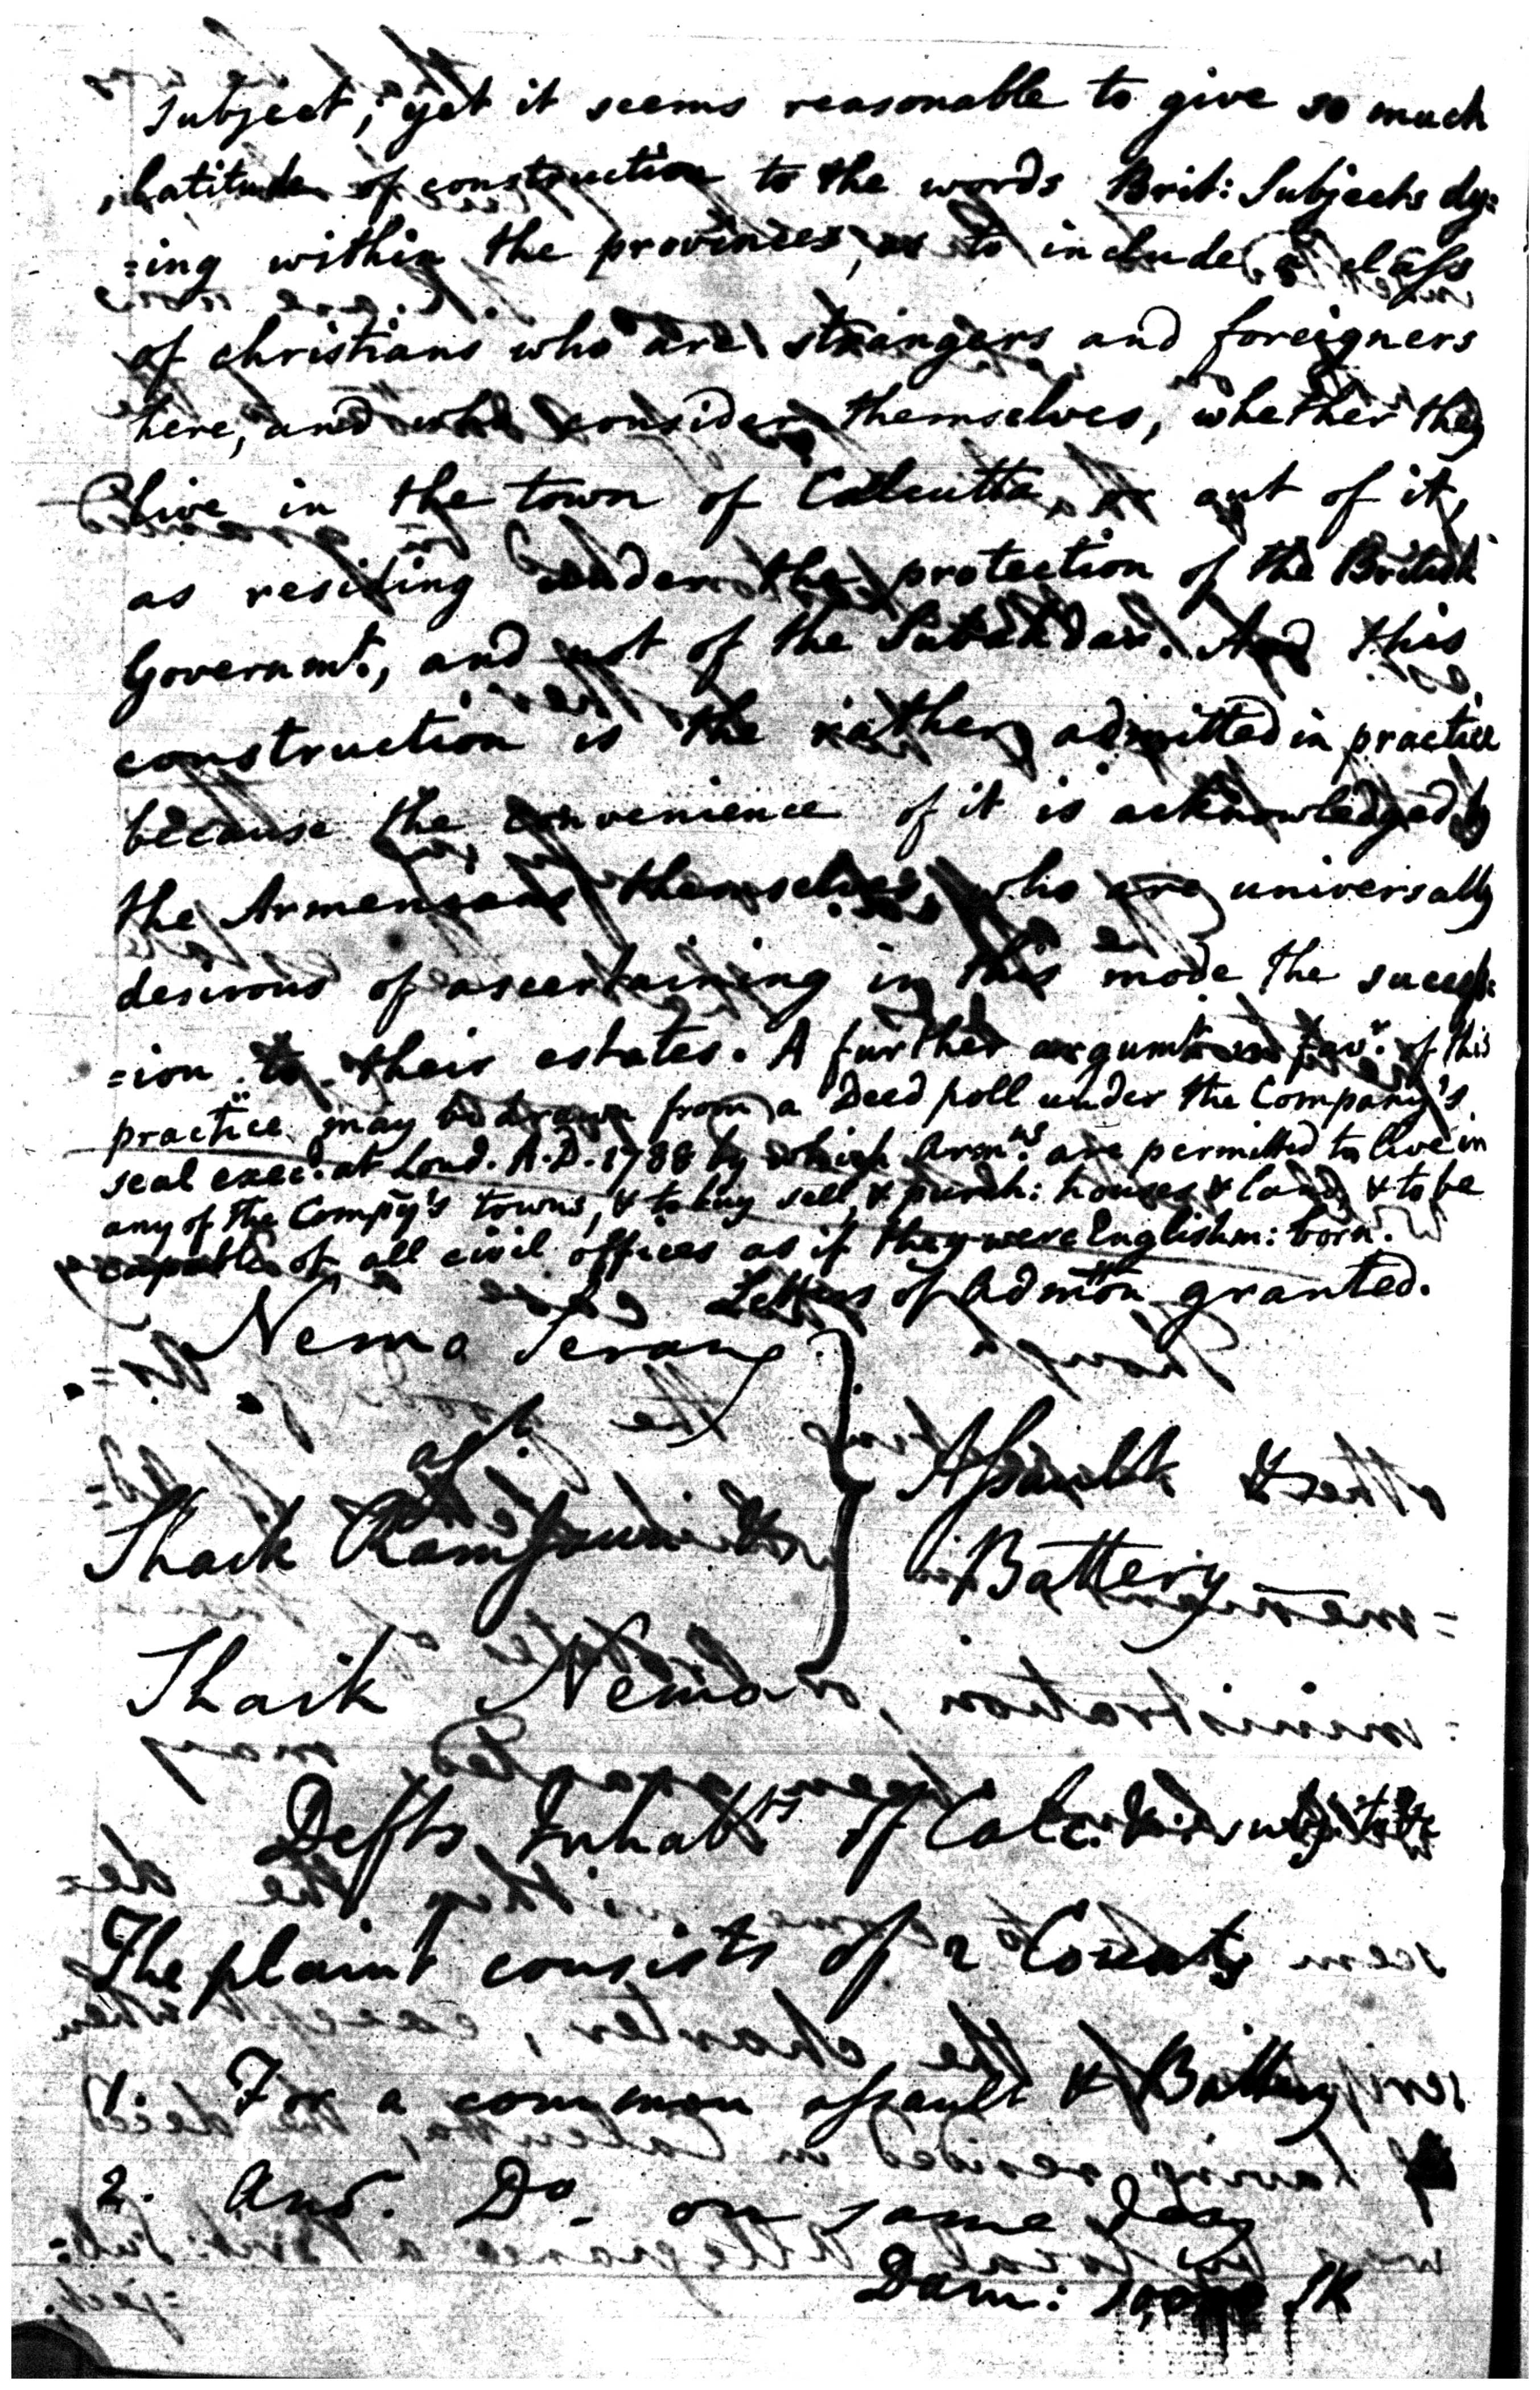 subject; yet it seems reasonable to give so much
latitude of construction to the words Brit: Subjects dy=
=ing within the provinces, as to include a class
of christians who are strangers and foreigners
here, and who consider themselves, whether they
live in the town of Calcutta, or out of it,
as residing under the protection of the British
Governmt., and not of the Subahdar. And this
construction is the rather admitted in practice
because the convenience of it is acknowledged by
the Armenians themselves, who are universally
desirous of ascertaining in this mode the success=
=ion to their estates. A further argumt. in favr. of this
practice may be drawn from a Deed poll under the Company's
seal exec: at Lond. A.D. 1788 by which Armns. are permitted to live in
any of the Compy's towns, & to buy sell, & purch: houses & land, & to be
capable of all civil offices as if they were Englishm: born.
Letters of Admōn granted.
Nema
agt.
Shaik
Assault &
Battery
Shaik Nemo
Defts Inhabts of Calc.
The plaint consists of 2 Counts
1. For a common assault & Battery
2. Anr. Do. on same day
Dam: 10,000 SR